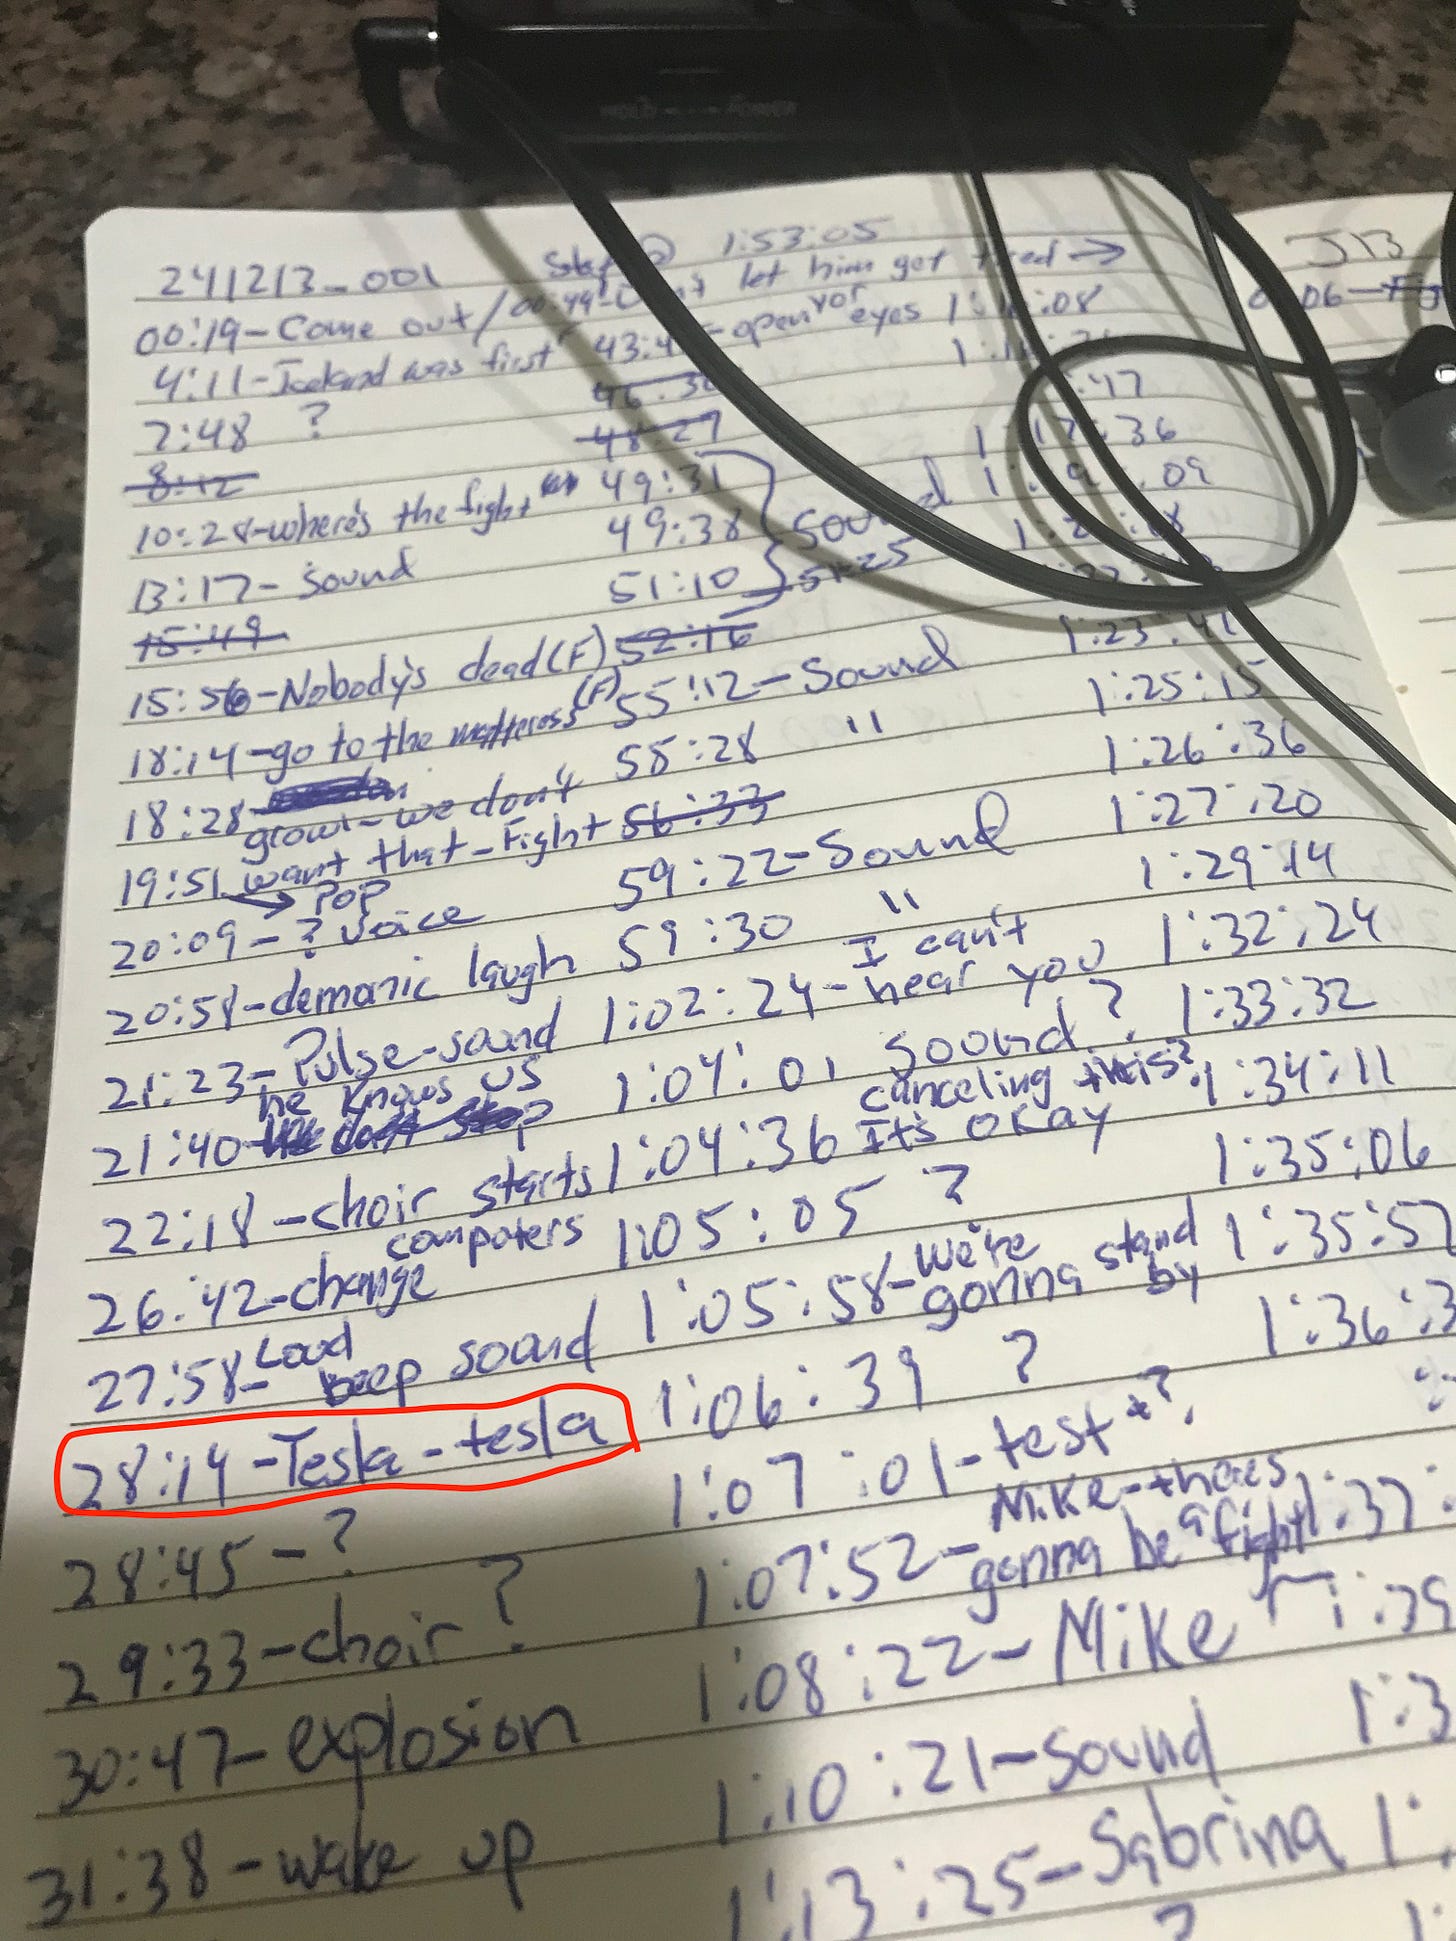 241213_001 1:53:05
00:19-Come out/00:49- let him get tired →
4:11-Iceland was first 43:4 -open yor eyes 1:1 :08
7:48 ? 46:30
8:12 48:27 :47
10:28-where's the fight 49:31 1:17:36
13:17-sound 49:38 Sound 1:19:09
15:49 51:10 51:25
15:56-Nobody's dead(F) 52:16
18:14-go to the matteress (F) 55:12-Sound 1:23:41
18:28- 58:28 " 1:25:15
growl-we don't
19:51 want that-Fight 56:33 1:26:36
→ POP
20:09-? voice 59:22-Sound 1:27:20
20:58-demonic laugh 59:30 " 1:29:14
21:23-Pulse-sound 1:02:24-I can't hear you 1:32:24
he knows us
21:40 1:04:01 Sound? 1:33:32
22:18-choir starts 1:04:36 canceling this? It's okay 1:34:11
26:42-change computers 1:05:05 ? 1:35:06
27:58-Loud beep sound 1:05:58-We're gonna stand by 1:35:57
28:14-Tesla-tesla 1:06:39 ? 1:36:3
28:45-? 1:07:01-test
29:33-choir? 1:07:52-Mike-theres gonna be a fight 1:37:
30:47-explosion 1:08:22-Mike
31:38-wake up 1:10:21-Sound 1:3
1:13:25-Sabrina 1:
?